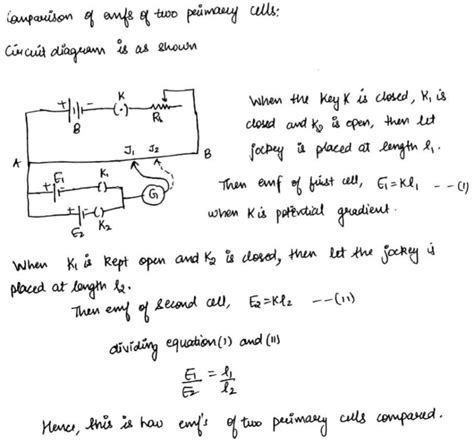 Comparison of emfs of two primary cells:
Circuit diagram is as shown
K
+ -
B
R1
When the key K is closed, K1 is
closed and K2 is open, then let
jockey is placed at length l1.
J1 J2
A
B
E1
K1
G
+ -
E2
K2
Then emf of first cell, E1=Kl1 --(1)
when K is potential gradient.
When K1 is kept open and K2 is closed, then let the jockey is
placed at length l2.
Then emf of second cell, E2=Kl2 --(11)
dividing equation(1) and (11)
E1/E2 = l1/l2
Hence, this is how emf's of two primary cells compared.